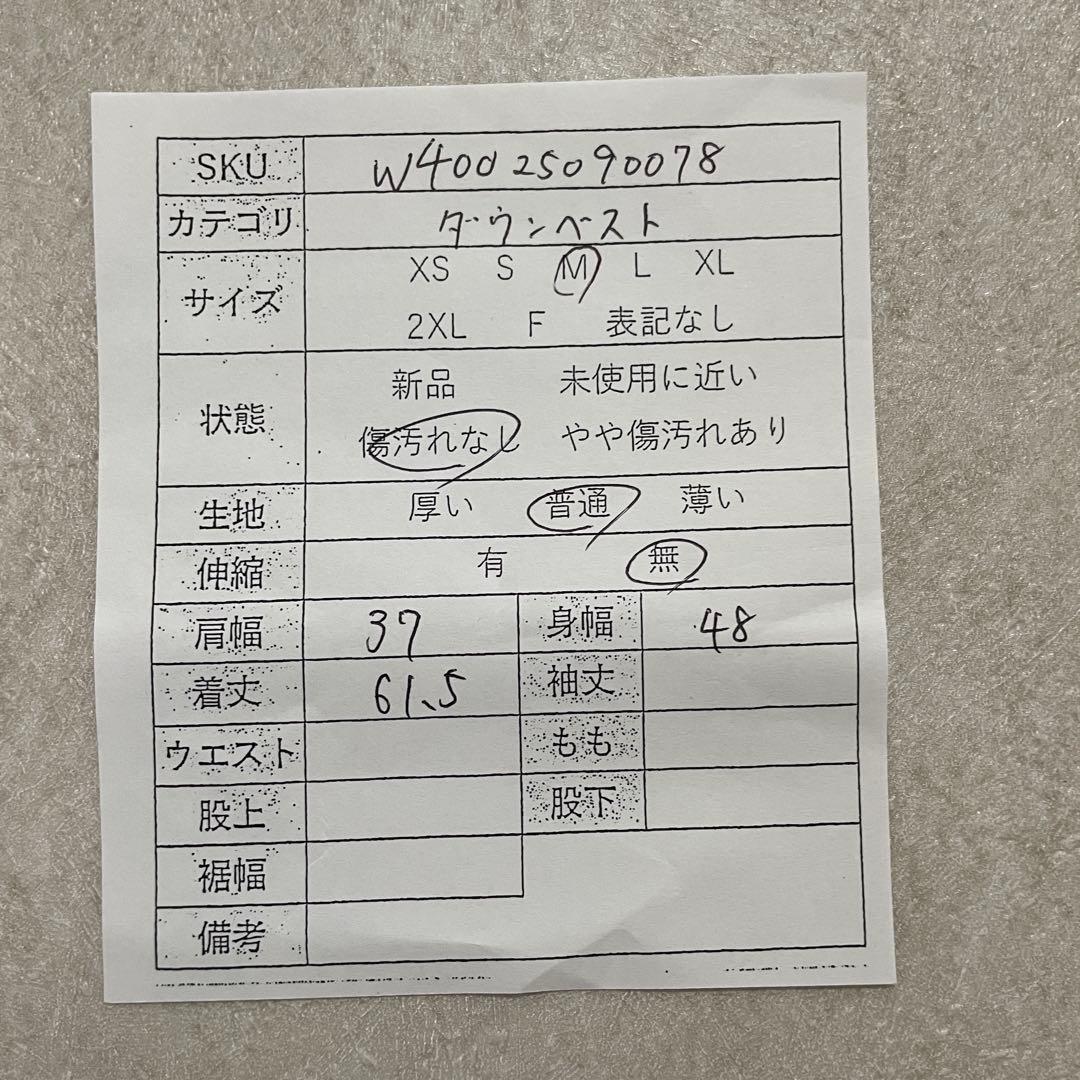 SKU W40025090078
カテゴリ ダウンベスト
サイズ XS S M L XL
2XL F 表記なし
状態 新品 未使用に近い
傷汚れなし やや傷汚れあり
生地 厚い 普通 薄い
伸縮 有 無
肩幅 37 身幅 48
着丈 61.5 袖丈
ウエスト もも
股上 股下
裾幅
備考